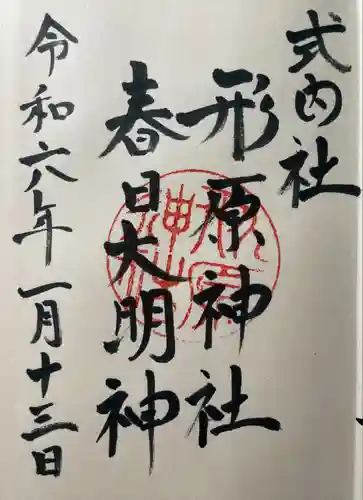 式内社
形原神社
春日大明神
令和六年一月十三日
形原神社